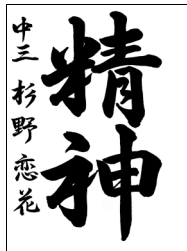 精神
中三 杉野恋花